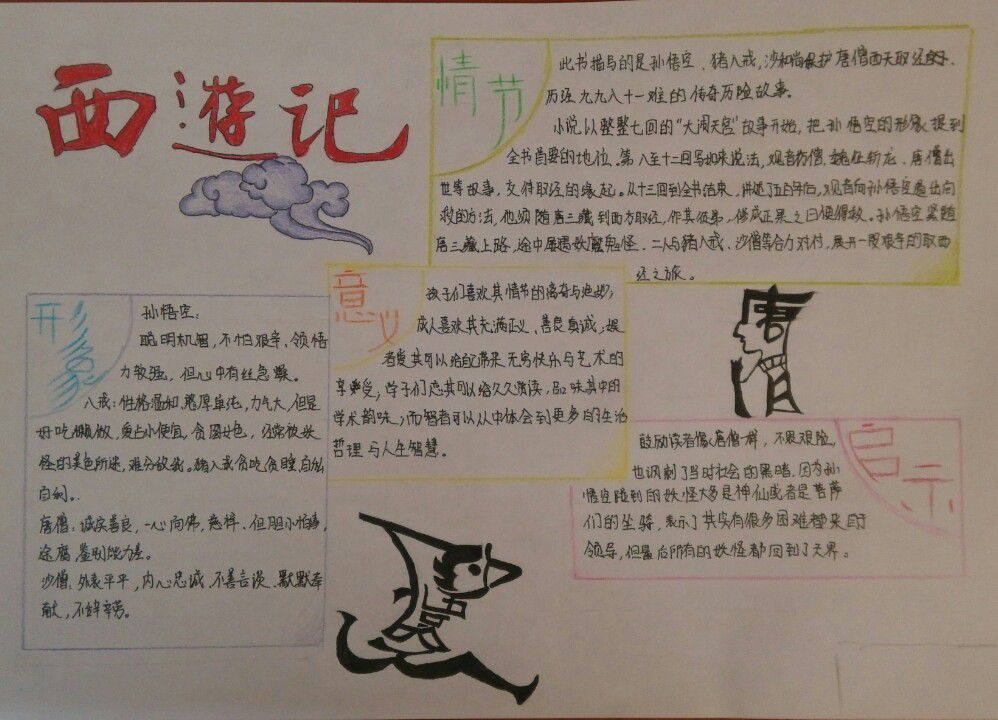 西遊记
情节
此书描写的是孙悟空、猪八戒,沙和尚保护唐僧西天取经的、
历经九九八十一难的传奇历险故事。
小说以整整七回的“大闹天宫”故事开始,把孙悟空的形象提到
全书首要的地位。第八至十二回写如来说法,观音访僧,魏征斩龙、唐僧出
世等故事,交待取经的缘起。从十三回到全书结束,讲述了五百年后,观音向孙悟空道出向
救的方法,他须随唐三藏到西方取经,作其徒弟,修成正果之日便得救。孙悟空紧随
唐三藏上路,途中屡遇妖魔鬼怪、二人与猪八戒、沙僧等合力对付,展开一段艰辛的取西
经之旅。
意义
孩子们喜欢其情节的离奇与绝妙;
成人喜欢其充满正义、善良真诚;
者爱其可以给自己带来无穷快乐与艺术的
享受;学子们恋其可以给久久演读,品味其中的
学术韵味;而智者可以从中体会到更多的生活
哲理与人生智慧。
形象
孙悟空:
聪明机智,不怕艰辛、领悟
力较强,但心中有丝急躁。
八戒:性格温和,憨厚单纯,力气大,但是
好吃懒做,爱占小便宜,贪图女色,经常被妖
怪的美色所迷,难分敌我。猪八戒贪吃贪睡,自私
自利。
唐僧:诚实善良,一心向佛,慈祥、但胆小怕事,
迂腐,鉴别能力差。
沙僧:外表平平,内心忠诚,不善言谈、默默奉
献,不辞辛劳。
唐僧
悟空
启示
鼓励读者像唐僧一样,不畏艰险,
也讽刺了当时社会的黑暗,因为孙
悟空碰到的妖怪大多是神仙或者是菩萨
们的坐骑,表示了其实有很多困难都来自于
领导,但最后所有的妖怪都回到了天界。